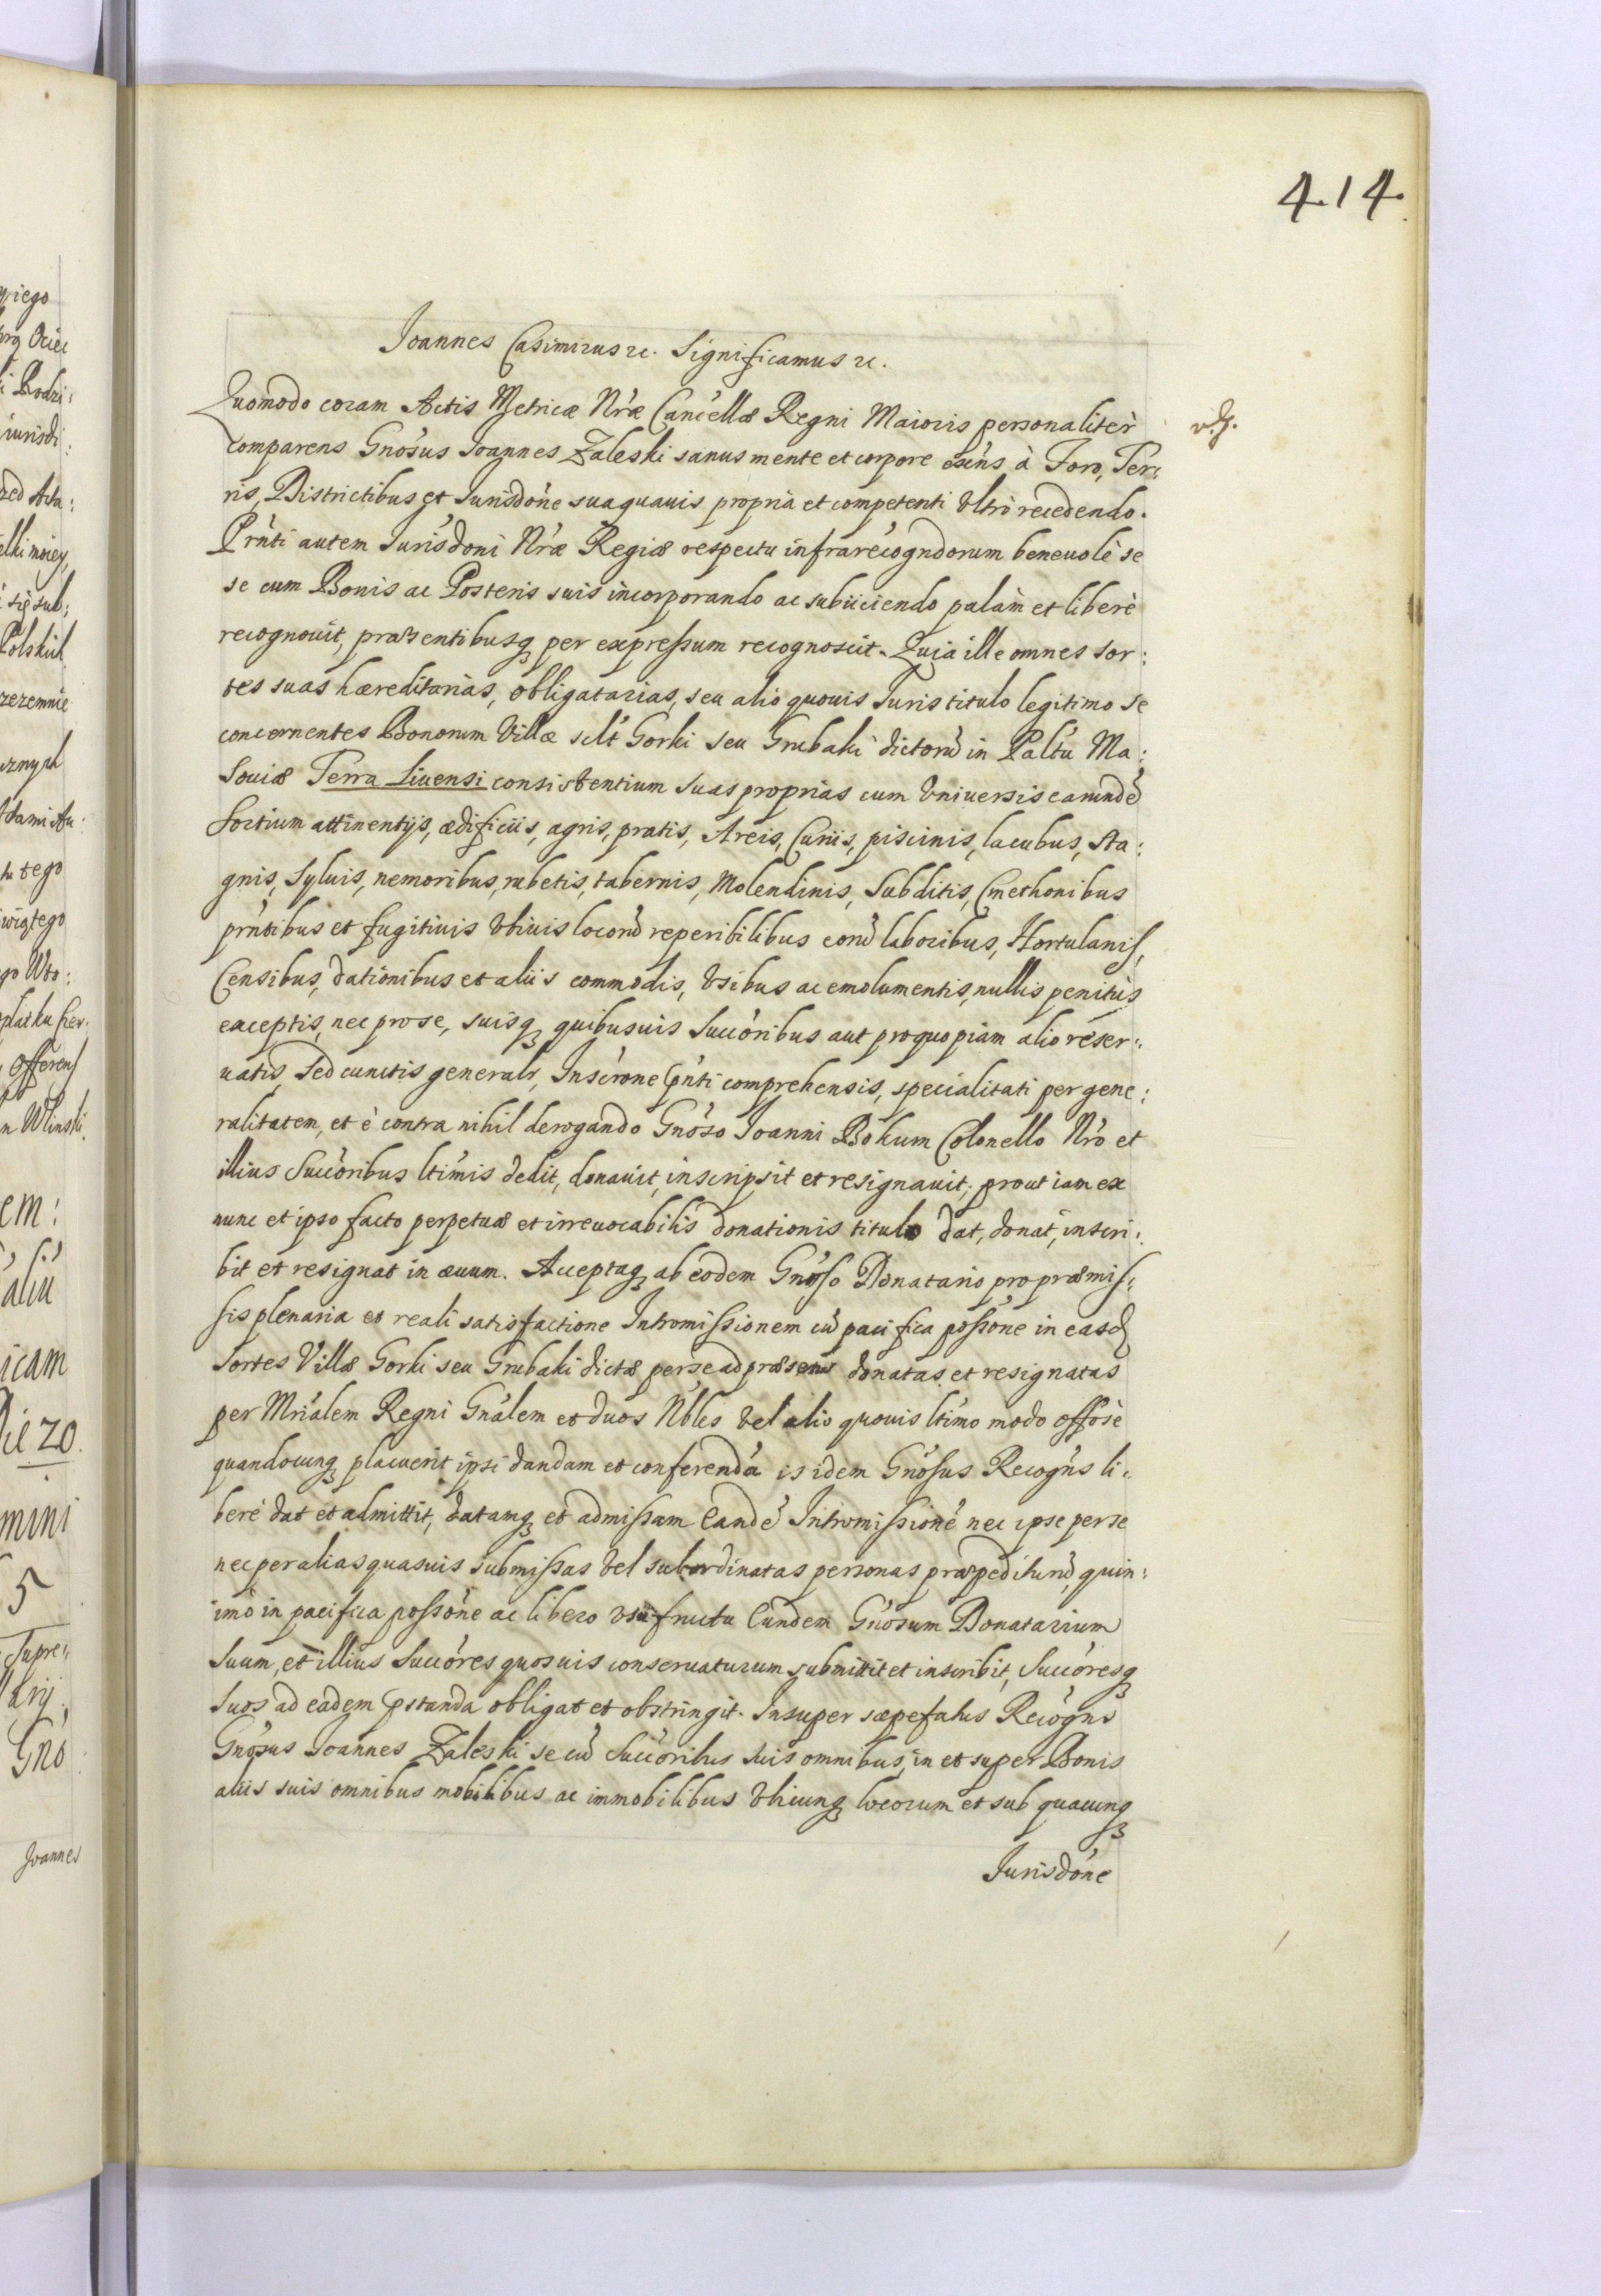 414.
Joannes Casimirus rc. Significamus rc.
Quomodo coram Actis Metricæ Nræ Cancellæ Regni Maioris personalitèr
comparens Gnosus Joannes Zaleski sanus mente et corpore exns à Foro, Ter:
ris, Districtibus et Jurisdone sua quauis propria et competenti Vltrò recedendo.
Prnti autem Jurisdoni Nræ Regiæ respectu infrarecogndorum beneuolè se
se cum Bonis ac Posteris suis incorporando ac subijciendo palàm et liberè
recognouit, præsentibusq per expressum recognoscit. Quia ille omnes sor:
tes suas hæreditarias, obligatarias, seu alio quouis Juris titulo legitimo se
concernentes Bonorum Villæ sclt Gorki seu Grubaki dictorũ in Paltu Ma:
souiæ Terra Liuensi consistentium suas proprias cum Vniuersis earundẽ
sortium attinentijs, ædificiis, agris, pratis, Areis, Curiis, piscinis, lacubus, sta:
gnis, syluis, nemoribus, rubetis, tabernis, Molendinis, subditis, Cmethonibus
prntibus et fugitiuis Vbiuis locorũ reperibilibus eorũ laboribus, Hortulanis,
Censibus, dationibus et aliis commodis, Vsibus ac emolumentis, nullis penitùs
exceptis, nec pro se, suisq quibusuis Succoribus aut pro quopiam alio reser:
uatis, sed cunctis generalr, Inscrone Pnti comprehensis, specialitati per gene:
ralitatem, et è contra nihil derogando Gnoso Joanni Bokum Colonello Nro et
illius Succoribus ltimis dedit, donauit, inscripsit et resignauit; prout iam ex
nunc et ipso facto perpetuæ et irreuocabilis donationis titulo dat, donat, inscri:
bit et resignat in æuum. Acceptaq ab eodem Gnoso Donatario pro præmis:
sis plenaria et reali satisfactione Intromissionem cũ pacifica possone in easd
Sortes Villæ Gorki seu Grubaki dictæ per se ad præsens donatas et resignatas
per Mrialem Regni Gnalem et duos Nbles Vel alio quouis ltimo modo offosè
quandocunq placuerit ipsi dandam et conferendã is idem Gnosus Recogns li:
berè dat et admittit, datamq et admissam Eandẽ Intromissionẽ nec ipse per se
nec per alias quasuis submissas Vel subordinatas personas præpediturũ, quin:
imò in pacifica possone ac libero vsufructu Eundem Gnosum Donatarium
suum, et illius Succores quosuis conseruaturum submittit et inscribit, Succoresq
suos ad eadem Pstanda obligat et obstringit. Insuper sæpefatus Recogns
Gnosus Joannes Zaleski se cũ Succoribus suis omnibus, in et super Bonis
aliis suis omnibus mobilibus ac immobilibus Vbicunq locorum et sub quacunq
Jurisdone